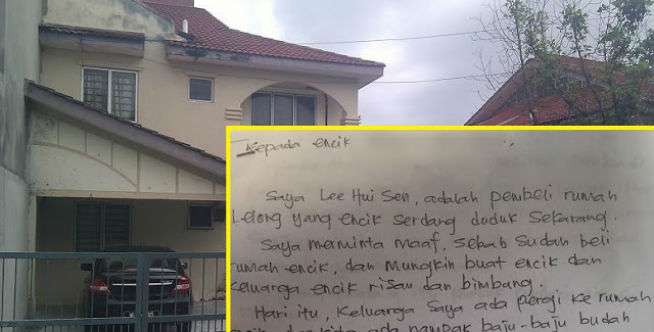 Kepada encik
Saya Lee Hui Sen, adalah pembeli rumah
Lelong yang encik serdang duduk sekarang.
Saya meminta maaf, sebab sudah beli
rumah encik, dan mungkin buat encik dan
keluarga encik risau dan bimbang.
Hari itu, keluarga saya ada pergi ke rumah
kita ada nampak baju-baju budak